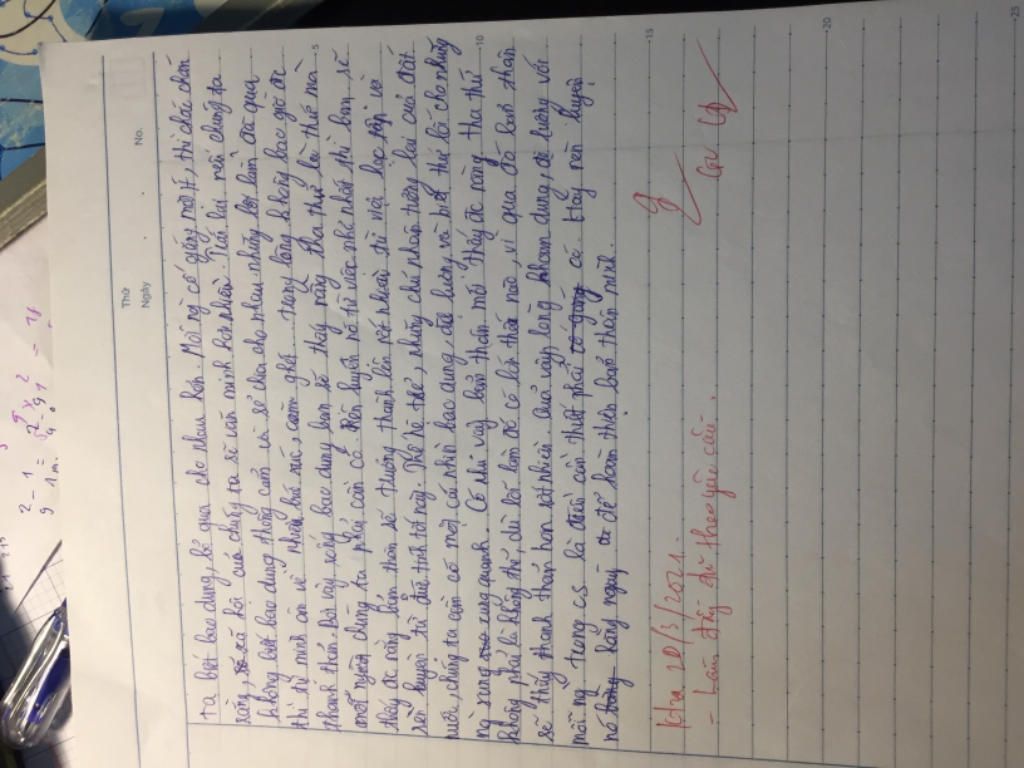 Thứ
Ngày
No.
ta biết bao dung, bỏ qua cho nhau hơn. Mỗi ng cố gắng một ít, thì chắc chắn
rằng xã hội của chúng ta sẽ văn minh hơn nhiều. Trái lại nếu chúng ta
không biết bao dung thông cảm và sẻ chia cho nhau những lỗi lầm đã qua
thì tự mình ôm về nhiều khổ cực, căm ghét trong lòng không bao giờ đc
thanh thản. Bởi vậy, sống bao dung bạn sẽ thấy rằng tha thứ là thế mà
một chúng ta phải cần có. Rèn luyện nó từ việc nhỏ nhất thì bạn sẽ
thấy đc rằng bản thân sẽ trưởng thành lên rất nhiều từ việc học tập và
rèn luyện từ đức tính tốt này. Thế hệ trẻ, những chủ nhân tương lai của đất
nước, chúng ta cần có một cái nhìn bao dung, độ lượng và biết tha thứ cho những
ng xung quanh. Có như vậy bản thân mới thấy đc rằng tha thứ
không phải là không thể, dù lỗi lầm đó có lớn thế nào, vì qua đó bản thân
sẽ thấy thanh thản hơn rất nhiều. Qua vậy, lòng khoan dung, độ lượng với
mỗi ng trong cs là điều cần thiết phải cố gắng có. Hãy rèn luyện
nó hằng ngày để hoàn thiện bản thân mình.
5
10
15
20
25
Ktra 20/3/2021.
- Làm đầy đủ theo yêu cầu.